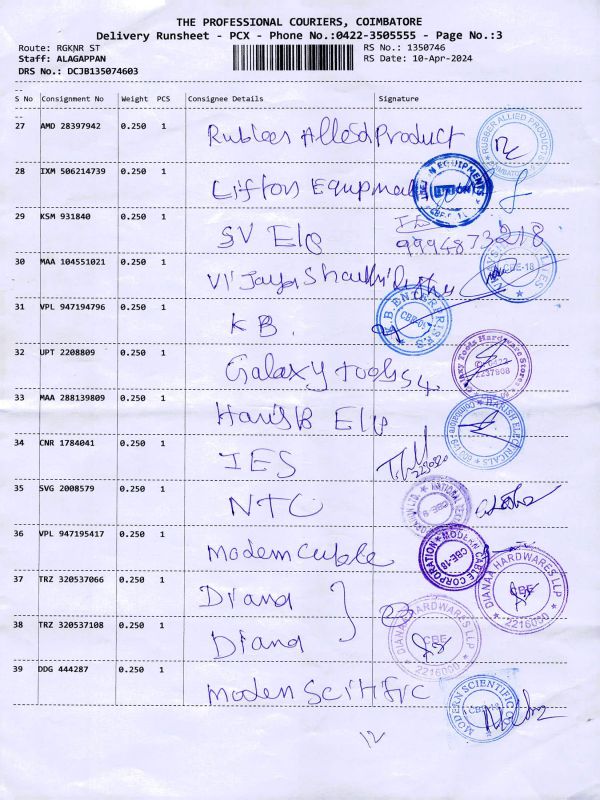 THE PROFESSIONAL COURIERS, COIMBATORE
Delivery Runsheet - PCX - Phone No.:0422-3505555 - Page No.:3
Route: RGKNR ST RS No.: 1350746
Staff: ALAGAPPAN RS Date: 10-Apr-2024
DRS No.: DCJB135074603
S No Consignment No Weight PCS Consignee Details Signature
27 AMD 28397942 0.250 1 Rubbers Allied Product RUBBER ALLIED PRODUCTS
28 IXM 506214739 0.250 1 Lifton Equpmat EQUIPMENTS
29 KSM 931840 0.250 1 SV Elg 9994873218
30 MAA 104551021 0.250 1 Vijaya CBE-18
31 VPL 947194796 0.250 1 KB. K.B. ENTERPRISES
32 UPT 2208809 0.250 1 Galaxy tools 54. Tools Hardware Stores 2237908
33 MAA 288139809 0.250 1 Harish Ele HARISH ELECTRICALS
34 CNR 1784041 0.250 1 IES
35 SVG 2008579 0.250 1 NTC NATIONAL
36 VPL 947195417 0.250 1 modern Cable MODERN CABLE CORPORATION CBE-18
37 TRZ 320537066 0.250 1 Diana DIANAA HARDWARES LLP CBE 2216000
38 TRZ 320537108 0.250 1 Diana DIANAA HARDWARES LLP CBE 2216000
39 DDG 444287 0.250 1 moden Scitific MODERN SCIENTIFIC CO
12